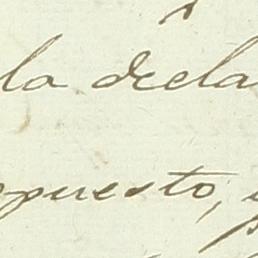 la decla
puesto, y